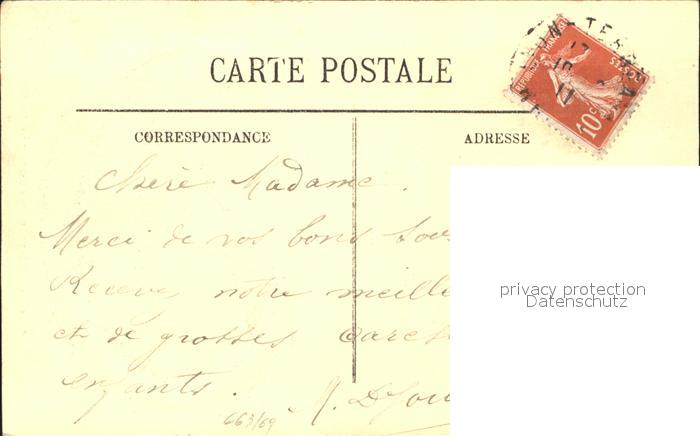 CARTE POSTALE
CORRESPONDANCE
ADRESSE
10c
POSTES
Chère Madame.
Merci de vos bons sou
Recevez notre meille
et de grosses cares
enfants.
663/69
privacy protection
Datenschutz